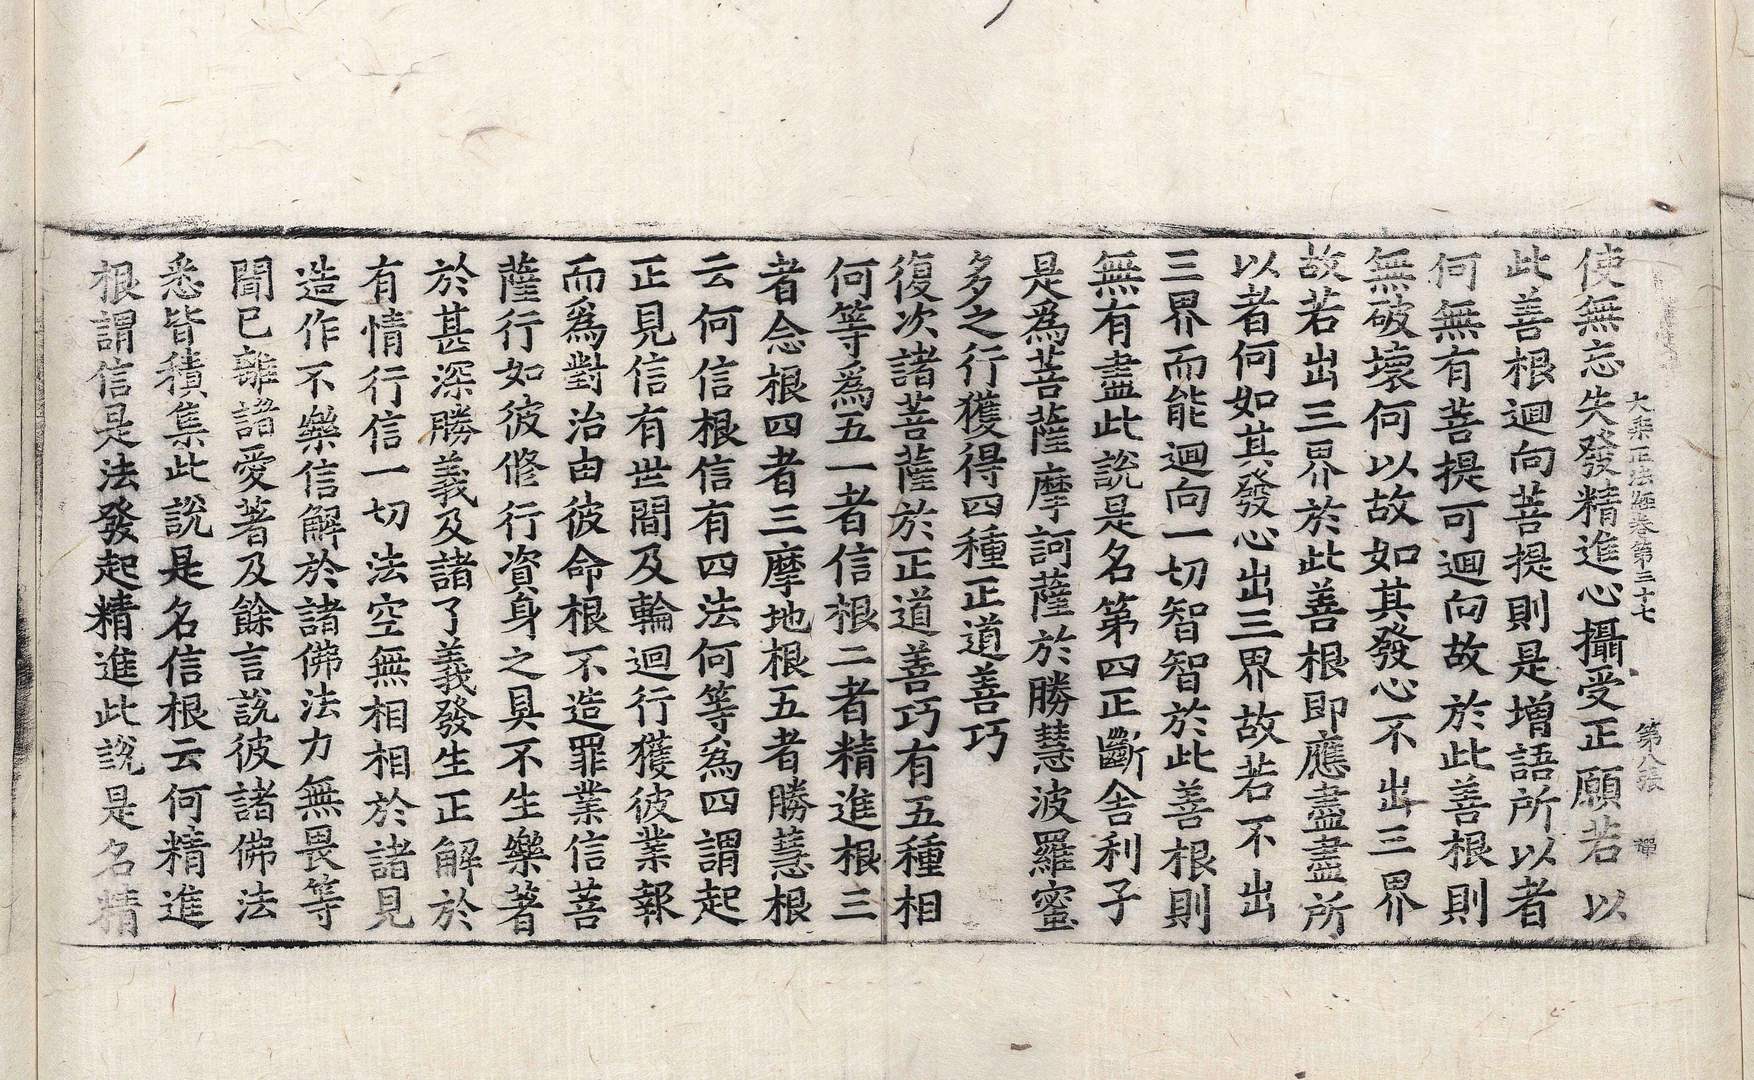 大乘正法經卷第三十七 第八張
使無忘失發精進心攝受正願若以
此善根迴向菩提則是增語所以者
何無有菩提可迴向故於此善根則
無破壞何以故如其發心不出三界
故若出三界於此善根即應盡盡所
以者何如其發心出三界故若不出
三界而能迴向一切智智於此善根則
無有盡此說是名第四正斷舍利子
是為菩薩摩訶薩於勝慧波羅蜜
多之行獲得四種正道善巧
復次諸菩薩於正道善巧有五種相
何等為五一者信根二者精進根三
者念根四者三摩地根五者勝慧根
云何信根信有四法何等為四謂起
正見信有世間及輪迴行獲彼業報
而為對治由彼命根不造罪業信菩
薩行如彼修行資身之具不生樂著
於甚深勝義及諸了義發生正解於
有情行信一切法空無相相於諸見
造作不樂信解於諸佛法力無畏等
聞已離諸愛著及餘言說彼諸佛法
悉皆積集此說是名信根云何精進
根謂信是法發起精進此說是名精